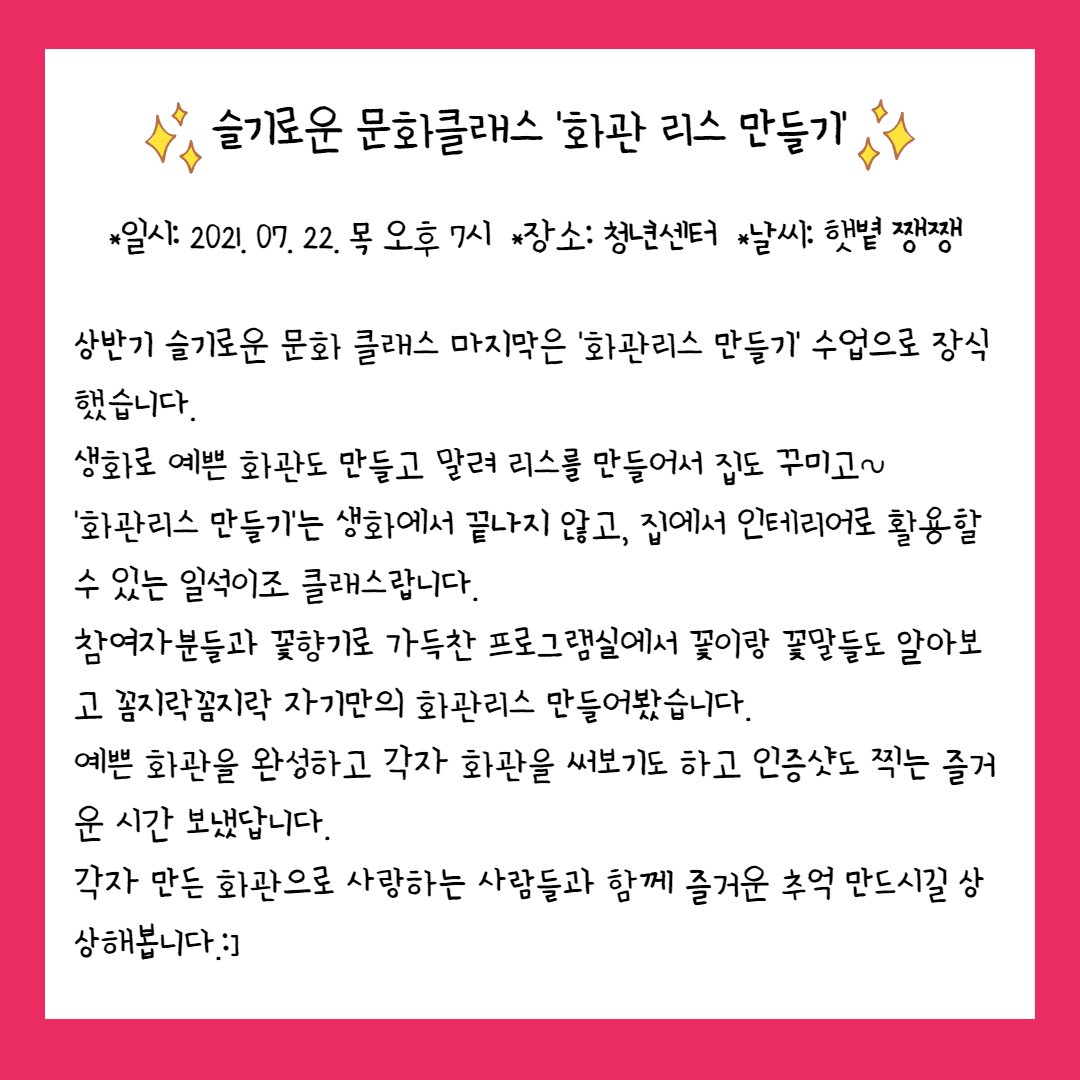 슬기로운 문화클래스 '화관 리스 만들기'
*일시: 2021. 07. 22. 목 오후 7시 *장소: 청년센터 *날씨: 햇볕 쨍쨍
상반기 슬기로운 문화 클래스 마지막은 '화관리스 만들기' 수업으로 장식
했습니다.
생화로 예쁜 화관도 만들고 말려 리스를 만들어서 집도 꾸미고~
'화관리스 만들기'는 생화에서 끝나지 않고, 집에서 인테리어로 활용할
수 있는 일석이조 클래스랍니다.
참여자분들과 꽃향기로 가득찬 프로그램실에서 꽃이랑 꽃말들도 알아보
고 꼼지락꼼지락 자기만의 화관리스 만들어봤습니다.
예쁜 화관을 완성하고 각자 화관을 써보기도 하고 인증샷도 찍는 즐거
운 시간 보냈답니다.
각자 만든 화관으로 사랑하는 사람들과 함께 즐거운 추억 만드시길 상
상해봅니다.:]